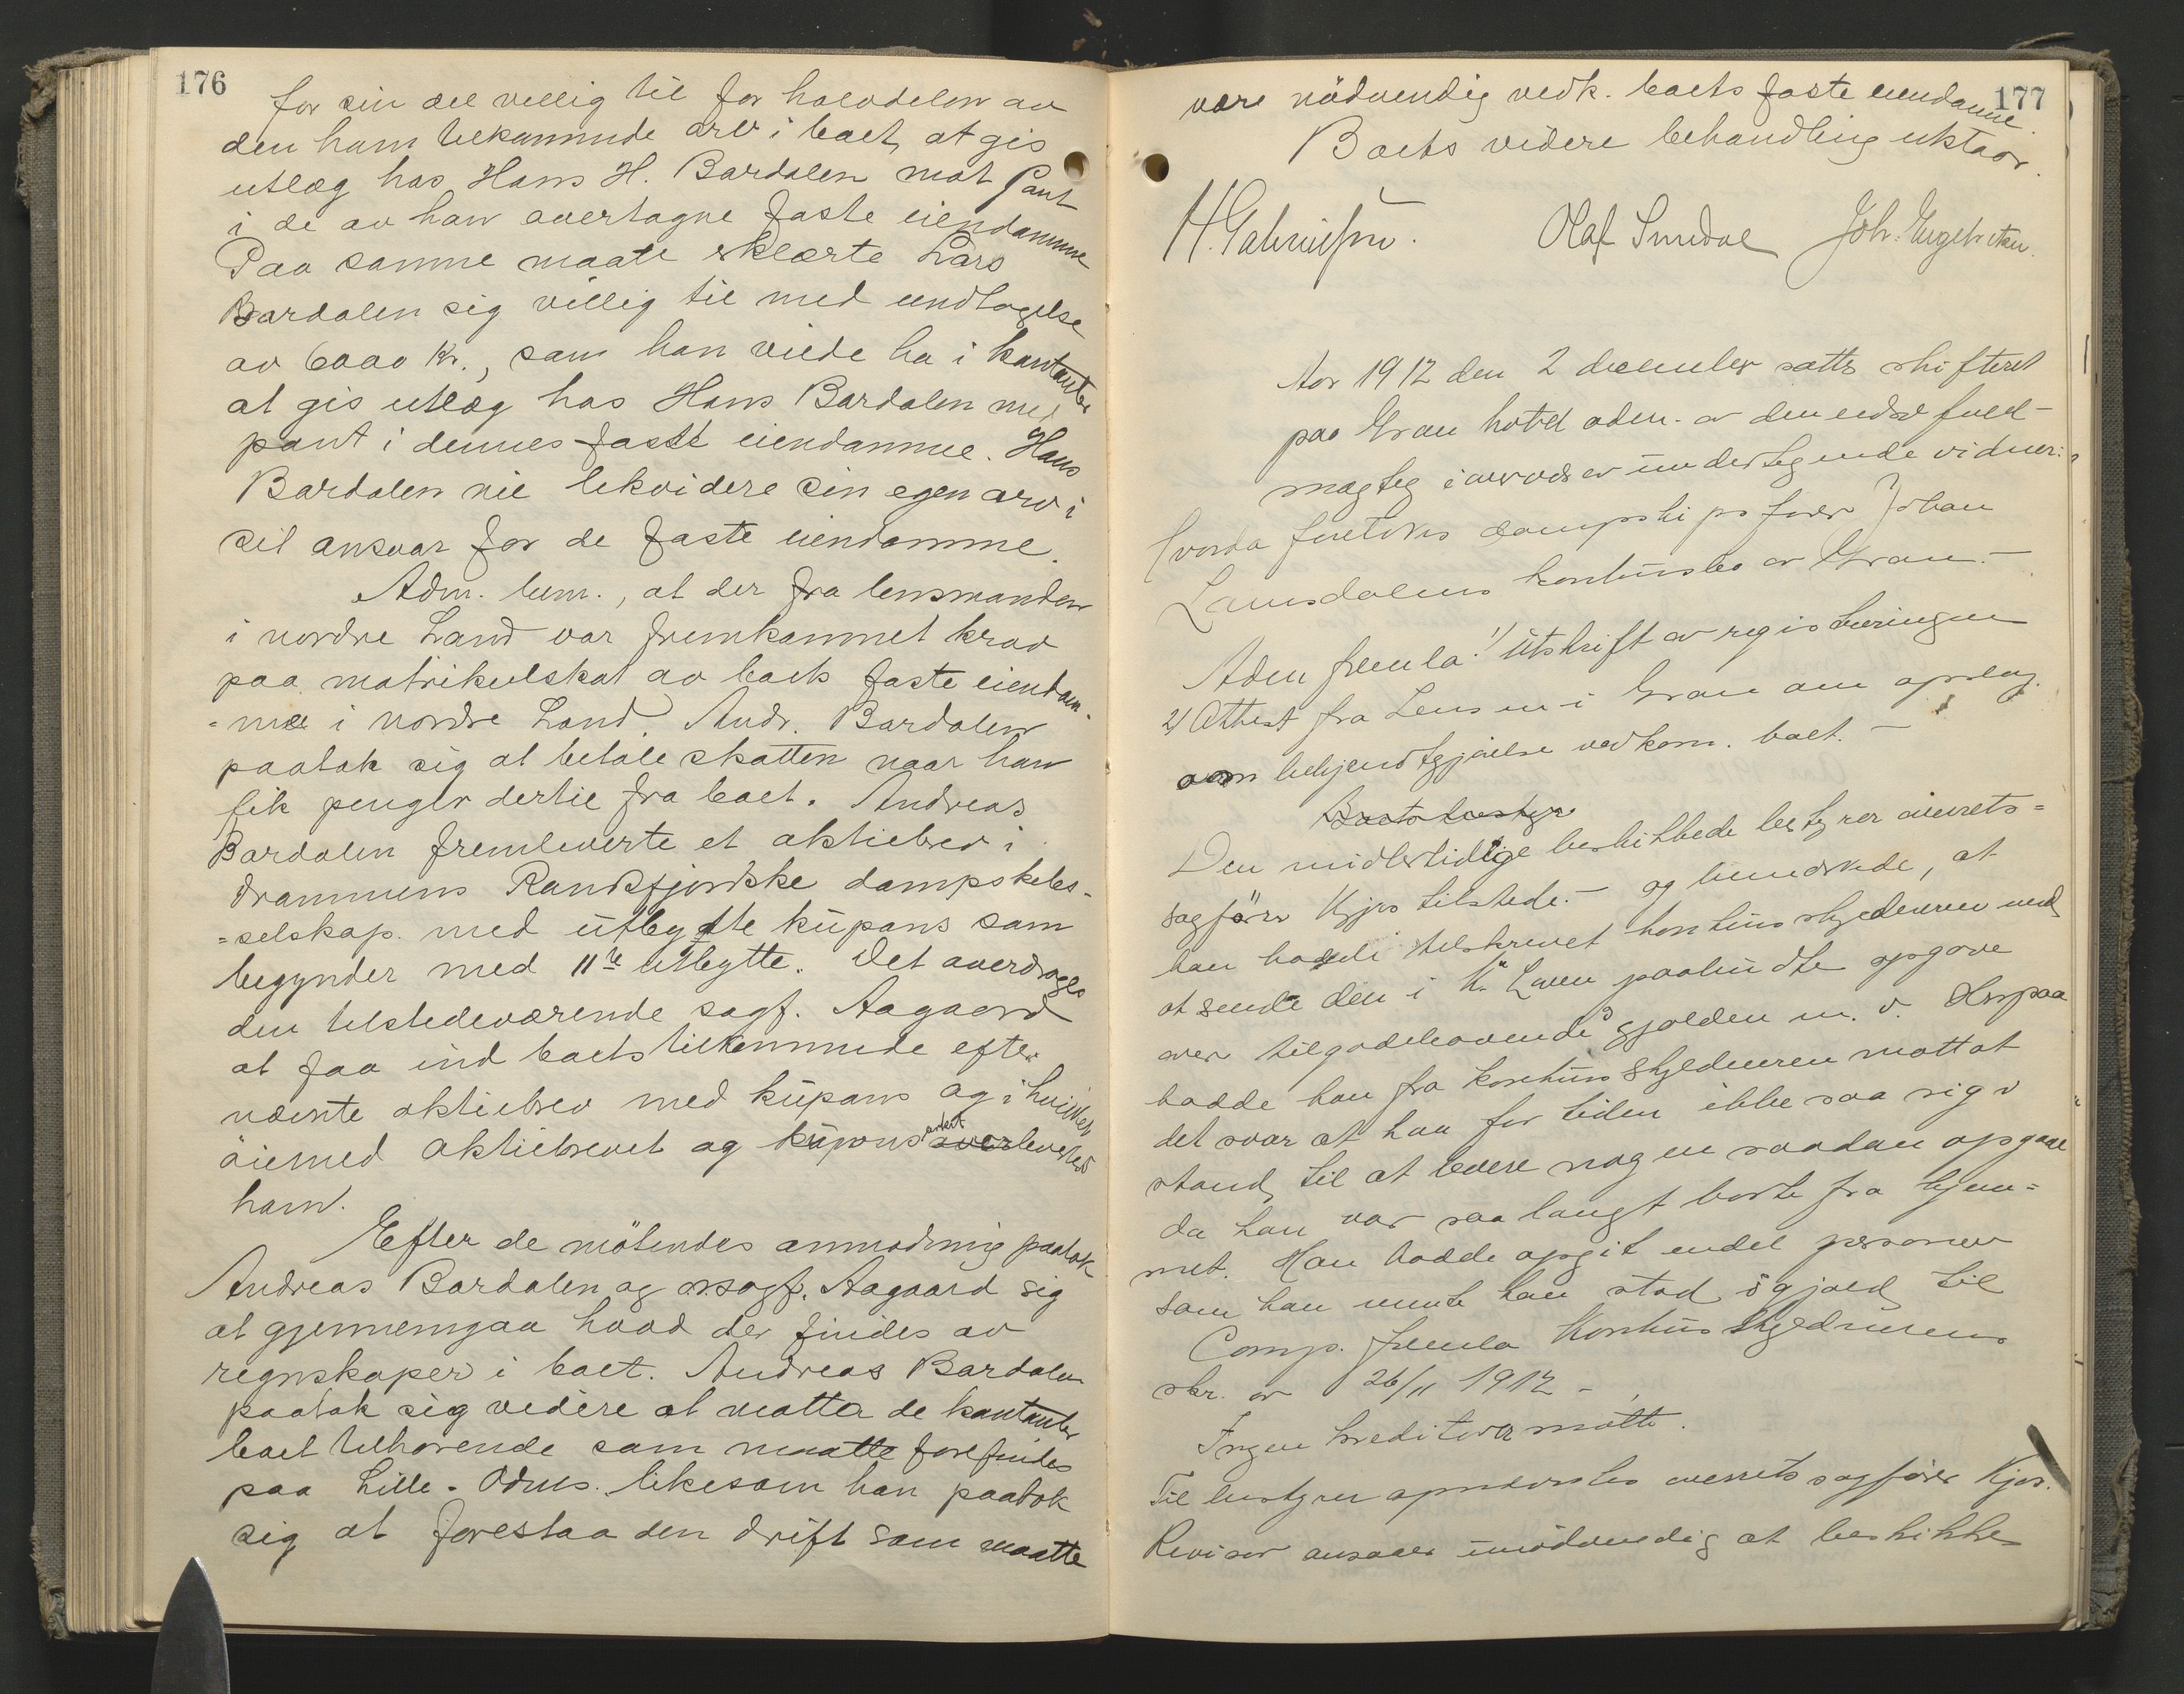 176
for sin del villig til for halvdelen av
den ham tilkommende arv i boet, at gis
utlæg hos Hans H. Bardalen mot Pant
i de av ham overtagne faste eiendomme
Paa samme maate erklærte Lars
Bardalen sig villig til med undtagelse
av 6000 Kr., som han vilde ha i kontanter
at gis utlæg hos Hans Bardalen med
pant i dennes faste eiendomme. Hans
Bardalen vil likvidere sin egen arv i
sit ansvar for de faste eiendomme.
Adm. bem., at der fra lensmanden
i nordre Land var fremkommet krav
paa matrikulskat av boets faste eiendom-
=me i nordre Land. Andr. Bardalen
paatok sig at betale skatten naar han
fik penger dertil fra boet. Andreas
Bardalen fremleverte et aktiebrev i
Drammens Randsfjordske dampskibs-
=selskap med utbytte kupons som
begynder med 11te utbytte. Det overdroges
den tilstedeværende sagf. Aagaard
at faa ind boets tilkommende efter
nævnte aktiebrev med kupons og i hvilket
øiemed aktiebrevet og kupons arket overlevertes
ham.
Efter de mötendes anmodning paatok
Andreas Bardalen og o.r.sagf. Aagaard sig
at gjennemgaa hvad der findes av
regnskaper i boet. Andreas Bardalen
paatok sig videre at motta de kontanter
boet tilhørende som maatte forefindes
paa Lille-Odnes likesom han paatok
sig at forestaa den drift som maatte
177
være nödvendig vedk. boets faste eiendomme.
Boets videre behandling utstaar.
H. Gabrielsen. Olaf Smedal Joh. Engebretsen.
Aar 1912 den 2 december sattes skifteret
paa Gran hotel adm. av den edsv. fuld-
mægtig i overvær av undertegnede vidner:
Hvorda foretokes dampskipsfører Johan
konkursbo av Gran.-
Adm freml. 1) Utskrift av registreringen
2) Attest fra Lensm i Gran om opslag
om bekjendtgjørelse vedkom. boet. -
Boets bestyr
Den midlertidige beskikkede bestyrer overrets=
sagfører Kjos tilstede.- og bemerkede, at
han havde tilskrevet konkursskyldneren med
at sende den i K. Loven paabudte opgave
over tilgodehavende, gjælden m. v. Herpaa
hadde han fra konkursskyldneren mottat
det svar at han for tiden ikke saa sig i
stand til at levere nogen saadan opgave
da han var saa langt borte fra hjem=
met. Han hadde opgit endel personer
som han mente han stod i gjæld til
Comp. freml. Konkursskyldnerens
skr. av 26/11 1912 -
Ingen kreditorer møtte.
Til bestyrer opnævntes overretssagfører Kjos.
Revisor ansaaes unødvendig at beskikke